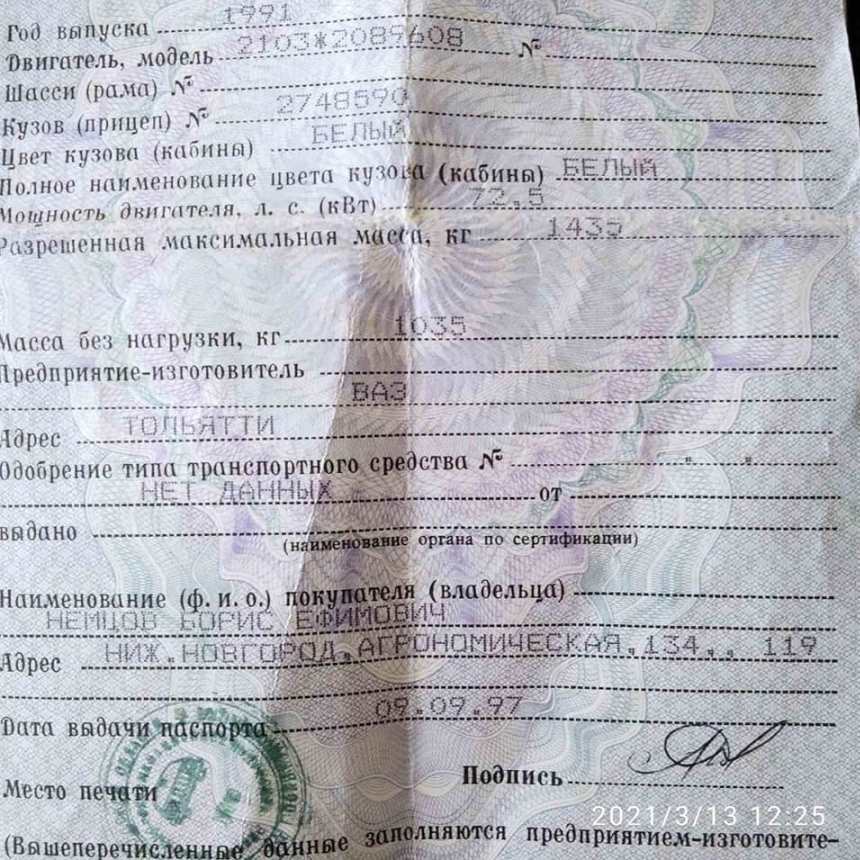 Год выпуска 1991
Двигатель, модель 2103*2089608 №
Шасси (рама) №
Кузов (прицеп) № 2748590
Цвет кузова (кабины) БЕЛЫЙ
Полное наименование цвета кузова (кабины) БЕЛЫЙ
Мощность двигателя, л. с. (кВт) 72.5
Разрешенная максимальная масса, кг 1435
Масса без нагрузки, кг 1035
Предприятие-изготовитель
ВАЗ
Адрес ТОЛЬЯТТИ
Одобрение типа транспортного средства №
НЕТ ДАННЫХ от
выдано
(наименование органа по сертификации)
Наименование (ф. и. о.) покупателя (владельца)
НЕМЦОВ БОРИС ЕФИМОВИЧ
Адрес НИЖ.НОВГОРОД,АГРОНОМИЧЕСКАЯ,134,, 119
Дата выдачи паспорта 09.09.97
Подпись
Место печати
2021/3/13 12:25
(Вышеперечисленные данные заполняются предприятием-изготовите-